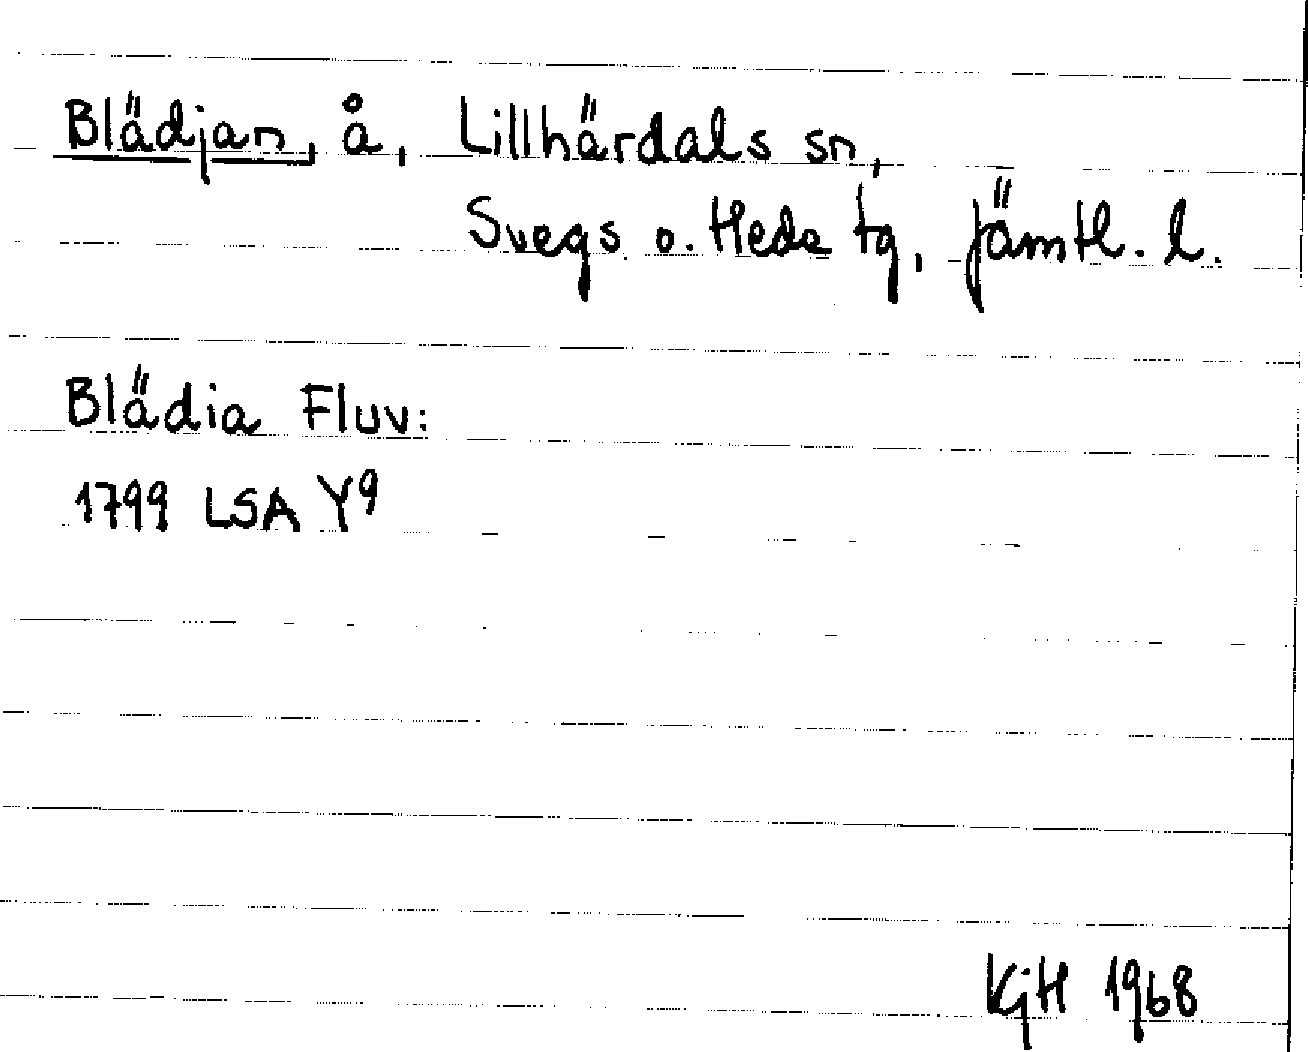 Blädjan, å, Lillhärdals sn,
Svegs o. Heds tg, Jämtl. l.
Blädia Fluv:
1799 LSA Y9
KGH 1968